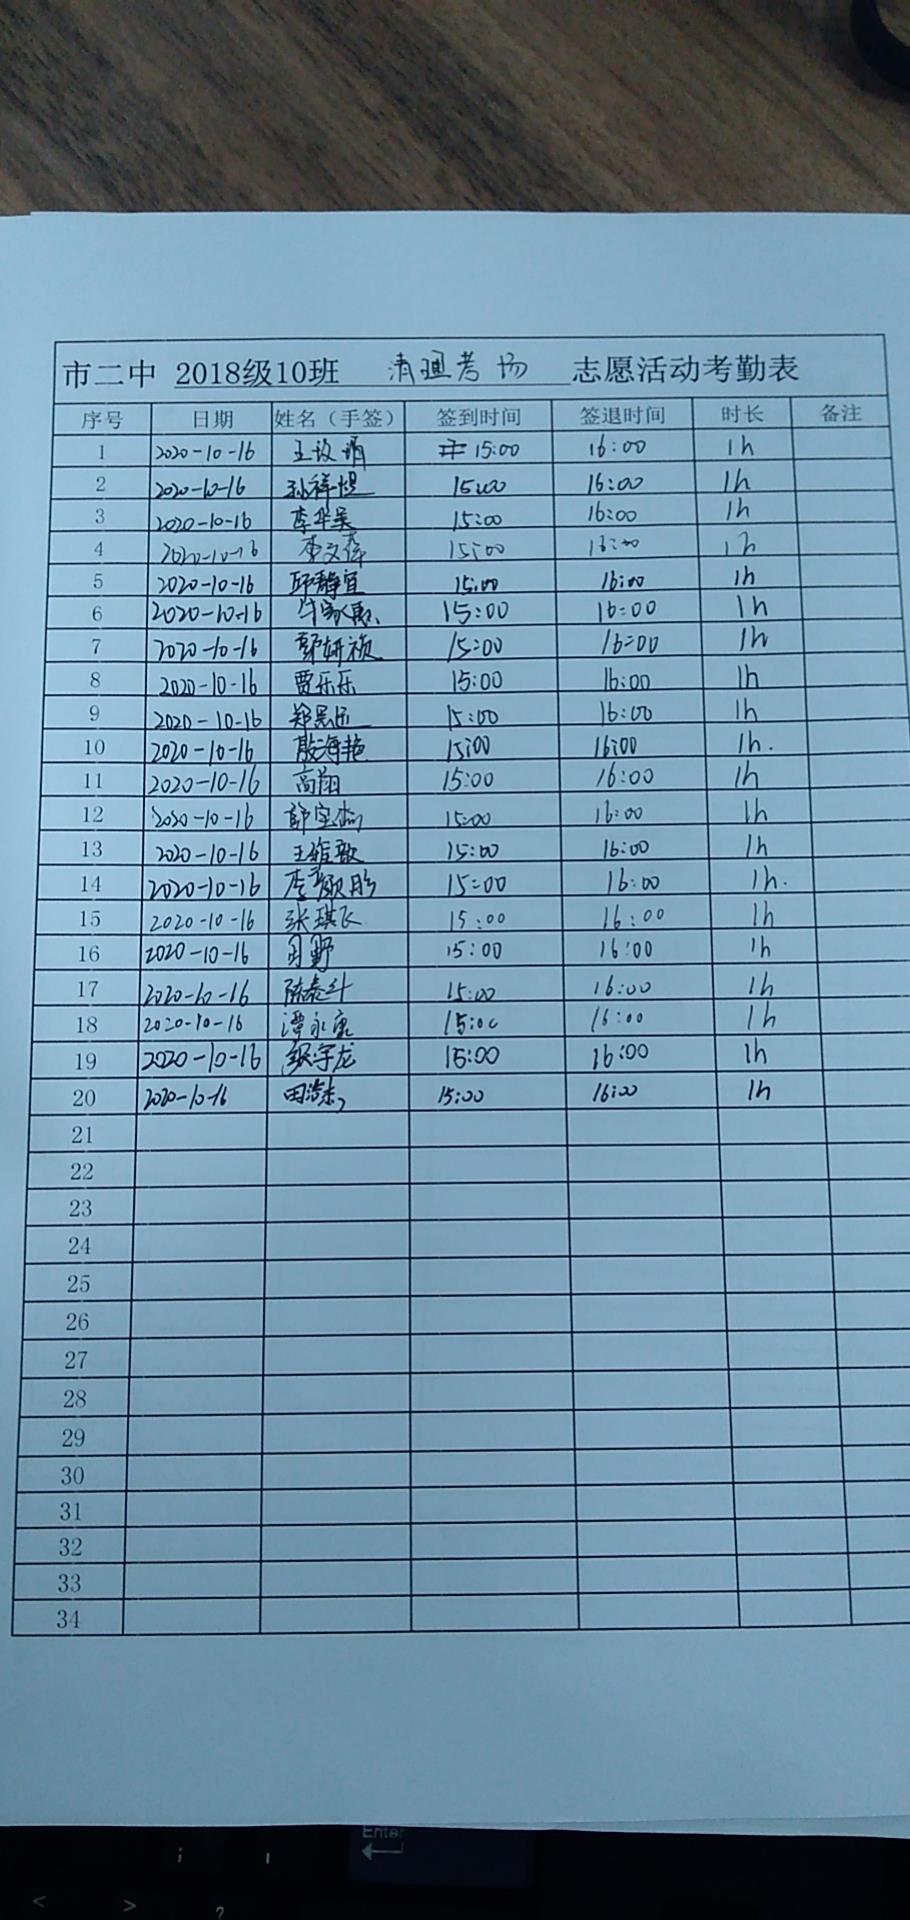 市二中 2018级10班 清理考场 志愿活动考勤表
序号 日期 姓名（手签） 签到时间 签退时间 时长 备注
1 2020-10-16 15:00 16:00 1h
2 2020-10-16 孙祥煜 15:00 16:00 1h
3 2020-10-16 李华昊 15:00 16:00 1h
4 2020-10-16 李文萍 15:00 16:00 1h
5 2020-10-16 邱静宜 15:00 16:00 1h
6 2020-10-16 15:00 16:00 1h
7 2020-10-16 郭妍祯 15:00 16:00 1h
8 2020-10-16 贾乐乐 15:00 16:00 1h
9 2020-10-16 15:00 16:00 1h
10 2020-10-16 殷海艳 15:00 16:00 1h.
11 2020-10-16 高翔 15:00 16:00 1h
12 2020-10-16 15:00 16:00 1h
13 2020-10-16 王维敬 15:00 16:00 1h
14 2020-10-16 15:00 16:00 1h.
15 2020-10-16 张琪飞 15:00 16:00 1h
16 2020-10-16 15:00 16:00 1h
17 2020-10-16 陈泰斗 15:00 16:00 1h
18 2020-10-16 谭永康 15:00 16:00 1h
19 2020-10-16 15:00 16:00 1h
20 2020-10-16 田浩杰 15:00 16:00 1h
21
22
23
24
25
26
27
28
29
30
31
32
33
34
Enter
;
< > ?